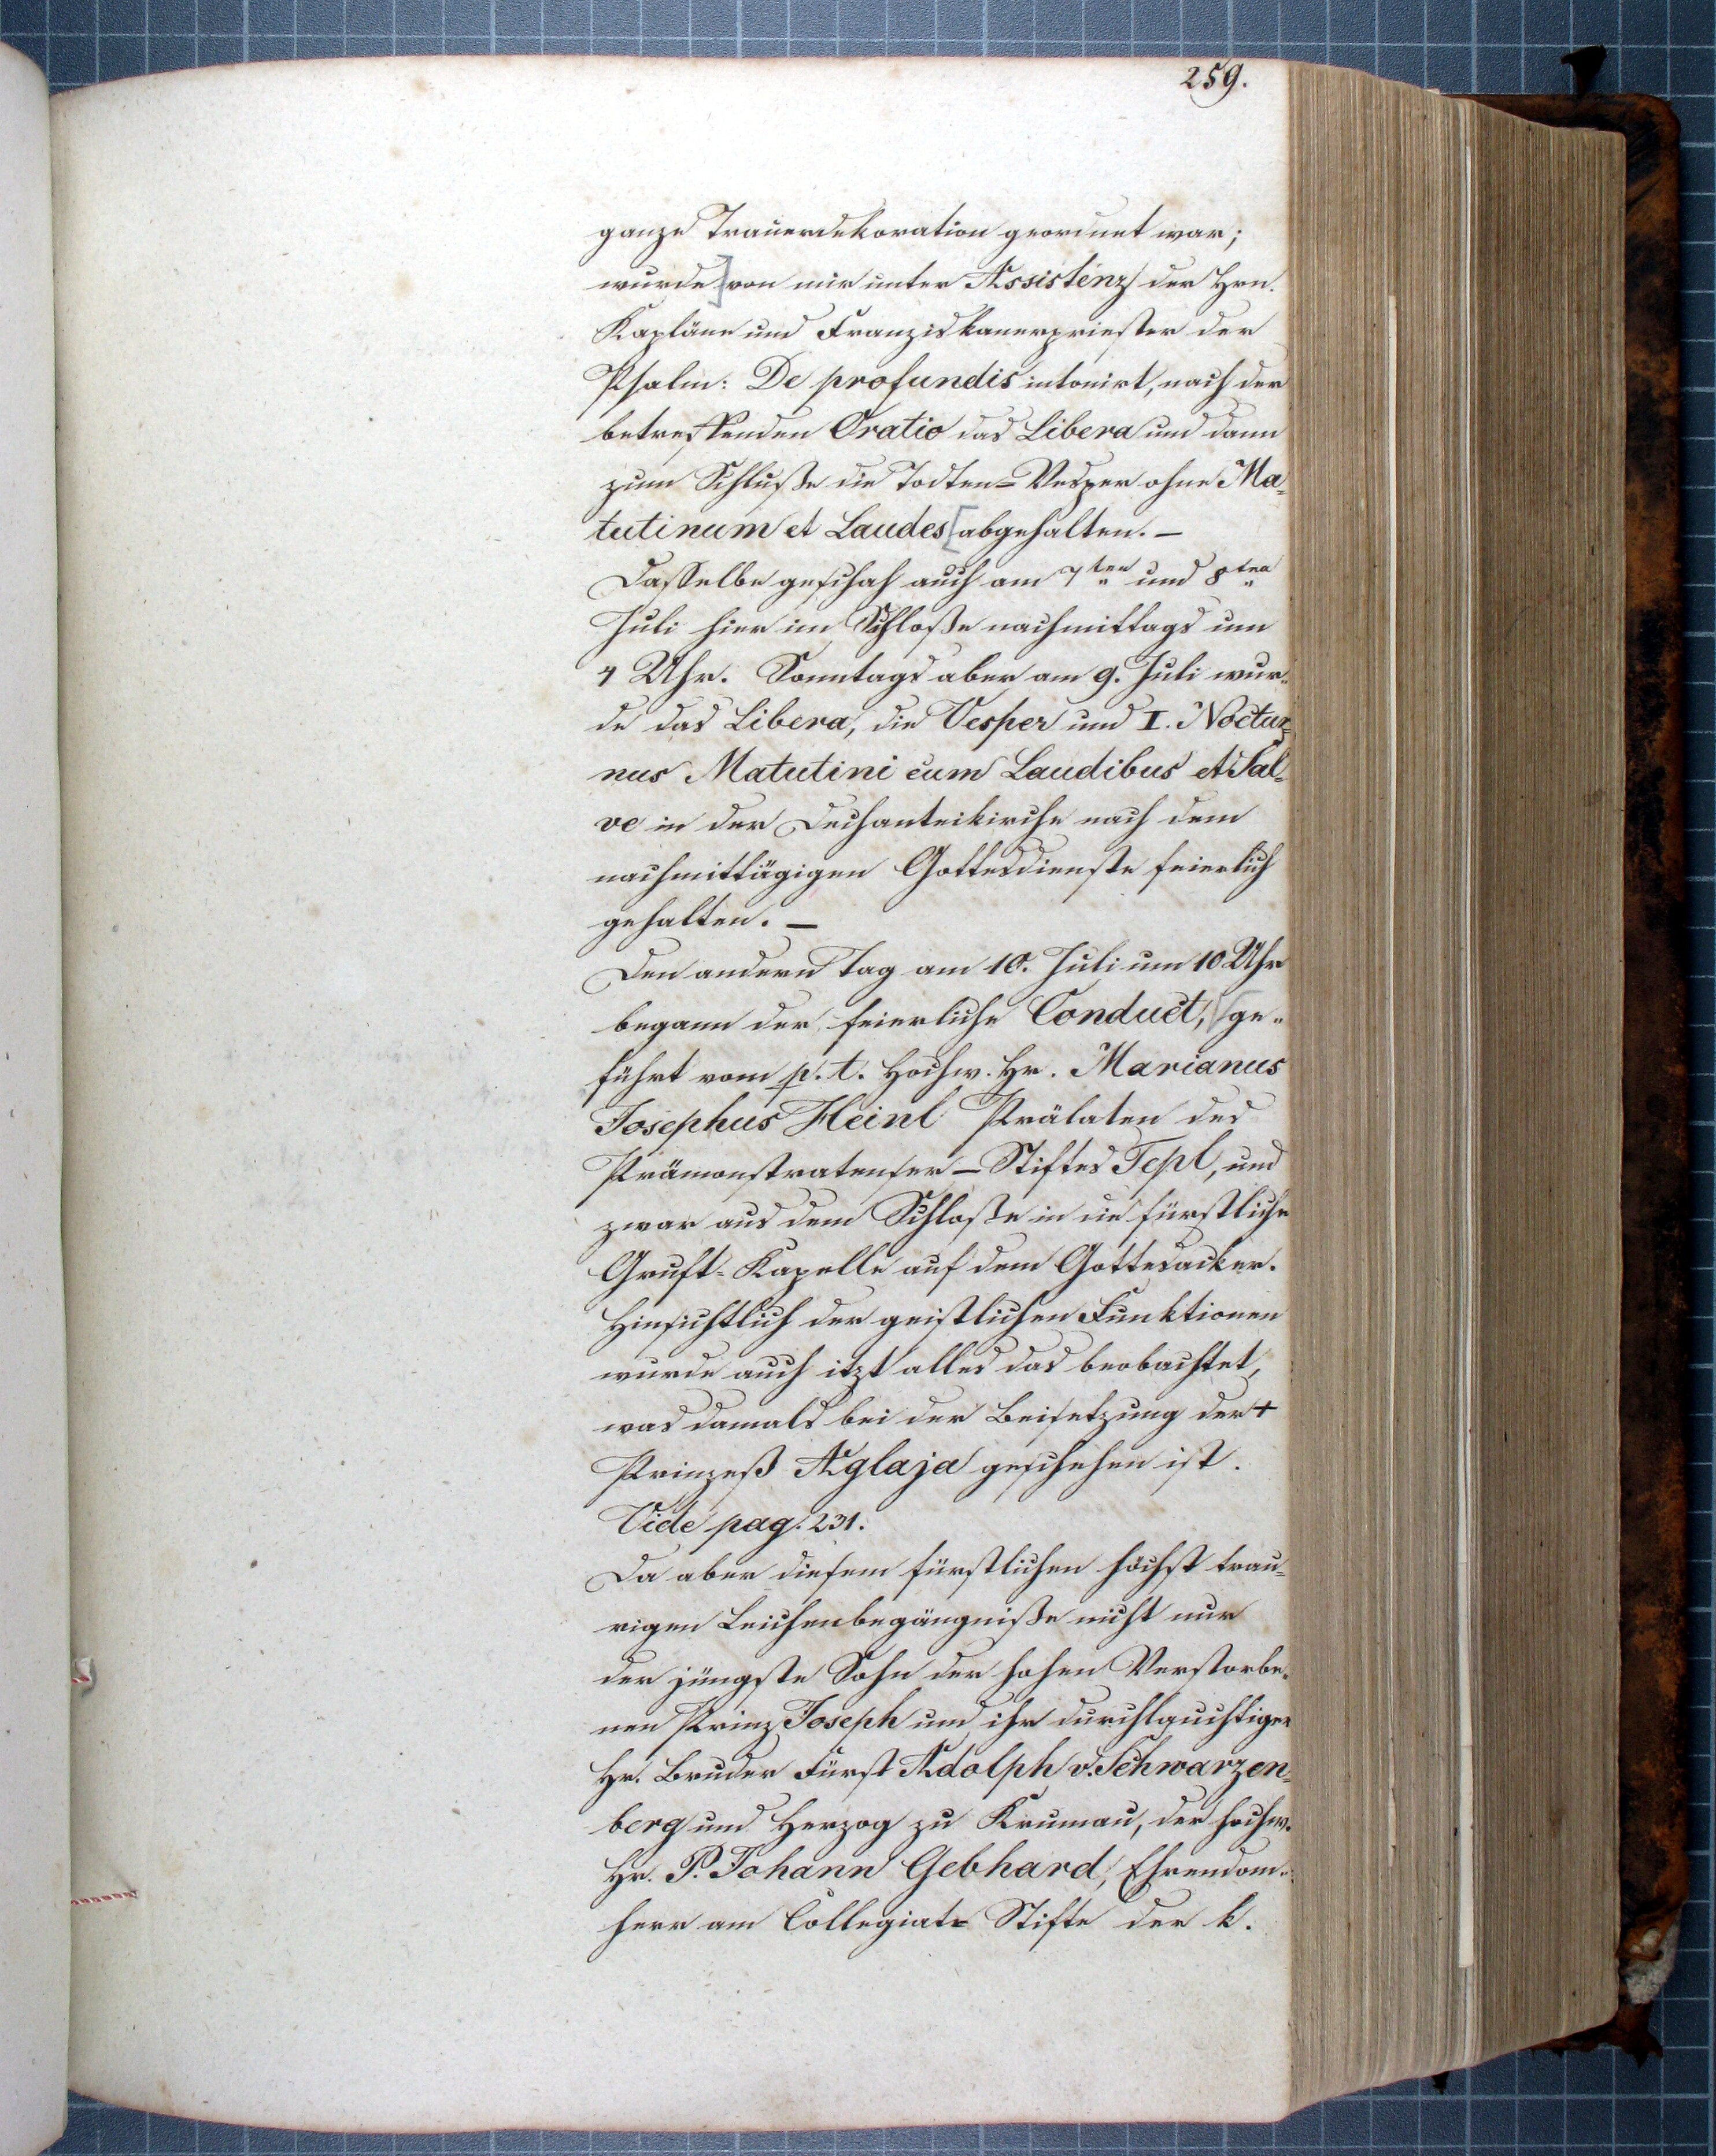 259.
ganze Trauerdekoration geordnet war;
wurde] von mir unter Assistenz der Hrn.
Kapläne und Franziskanerpriester der
Psalm: De profundis intonirt, nach der
betreffenden Oratio das Libera und dann
zum Schluße die Todten=Vesper ohne Ma=
tutinum et Laudes [abgehalten. –
Dasselbe geschah auch am 7ten und 8ten
Juli hier im Schloße nachmittags um
4 Uhr. Sonntags aber am 9. Juli wur=
de das Libera, die Vesper und I. Noctur=
nus Matutini cum Laudibus et Sal=
ve in der Dechanteikirche nach dem
nachmittägigen Gottesdienste feierlich
gehalten. –
Den andern Tag am 10. Juli um 10 Uhr
begann der feierliche Conduct, [ge=
führt vom p. t. Hochw. Hr. Marianus
Josephus Heinl Prälaten des
Prämonstratenser–Stiftes Tepl, und
zwar aus dem Schloße in die fürstliche
Gruft=Kapelle auf dem Gottesacker.
Hinsichtlich der geistlichen Funktionen
wurde auch itzt alles das beobachtet,
was damals bei der Beisetzung der +
Prinzeß Aglaja geschehen ist.
Vide pag. 231.
Da aber diesem fürstlichen höchst trau=
rigen Leichenbegängniße nicht nur
der jüngste Sohn der hohen Verstorbe=
nen Prinz Joseph und ihr durchlauchtiger
Hr. Bruder Fürst Adolph v. Schwarzen=
berg und Herzog zu Krumau, der hochw.
Hr. P. Johann Gebhard, Ehrendom=
herr am Collegiat= Stifte der k.